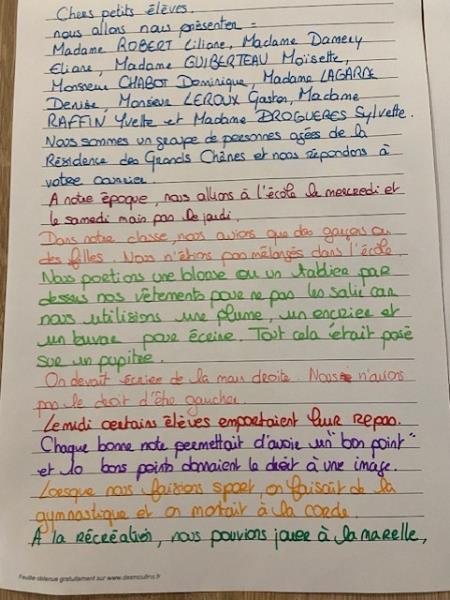 Chers petits élèves.
nous allons nous présenter :
Madame ROBERT Liliane, Madame Damery
Eliane, Madame GUIBERTEAU Moïsette,
Monsieur CHABOT Dominique, Madame LAGARDE
Denise, Monsieur LEROUX Gaston, Madame
RAFFIN Yvette et Madame DROGUERES Sylvette.
Nous sommes un groupe de personnes agées de la
Résidence des Grands Chênes et nous répondons à
votre courrier.
A notre époque, nous allions à l'école le mercredi et
le samedi mais pas le jeudi.
Dans notre classe, nous avions que des garçons ou
des filles. Nous n'étions pas mélangés dans l'école.
Nous portions une blouse ou un tablier par
dessus nos vêtements pour ne pas les salir car
nous utilisions une plume, un encrier et
un buvar pour écrire. Tout cela était posé
sur un pupitre.
On devait écrire de la main droite. Nous n'avions
pas le droit d'être gaucher.
Le midi certains élèves emportaient leur repas.
Chaque bonne note permettait d'avoir un "bon point"
et 10 bons points donnaient le droit à une image.
Lorsque nous faisions sport on faisait de la
gymnastique et on montait à la corde.
A la récréation, nous pouvions jouer à la marelle,
Feuille obtenue gratuitement sur www.desmoulins.fr